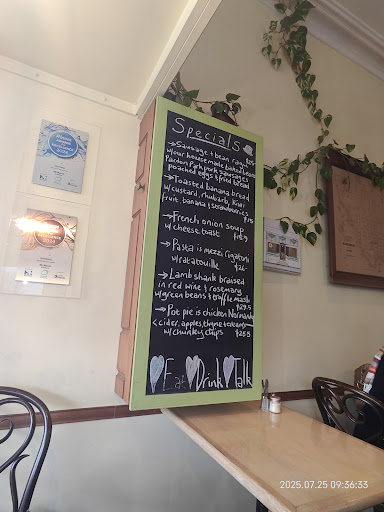 Specials
→Sausage + bean ragu $25
w/our housemade baked beans
Pardon Park pork sausages
poached eggs & fried bread
→Toasted banana bread
w/custard, rhubarb, kiwi
fruit, banana & strawberries
$15
→French onion soup
w/cheese toast $18.5
→Pasta is mezzi rigatoni
w/ratatouille $26
→Lamb shank braised
in red wine & rosemary
w/green beans & truffle mash
$29.5
→Pot pie is chicken Normande
<cider, apples, thyme & cream>
w/chunky chips $25.5
Eat Drink Talk
2025.07.25 09:36:33